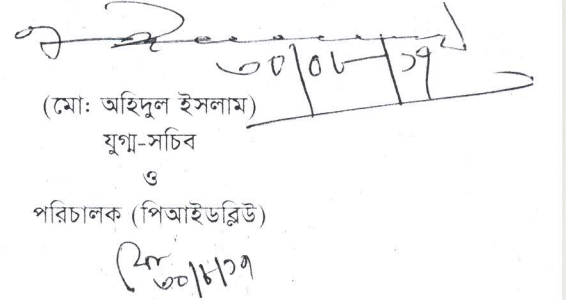 ৩০/০৮/১৭
(মো: অহিদুল ইসলাম)
যুগ্ম-সচিব
ও
পরিচালক (পিআইডব্লিউ)
৩০/৮/১৭